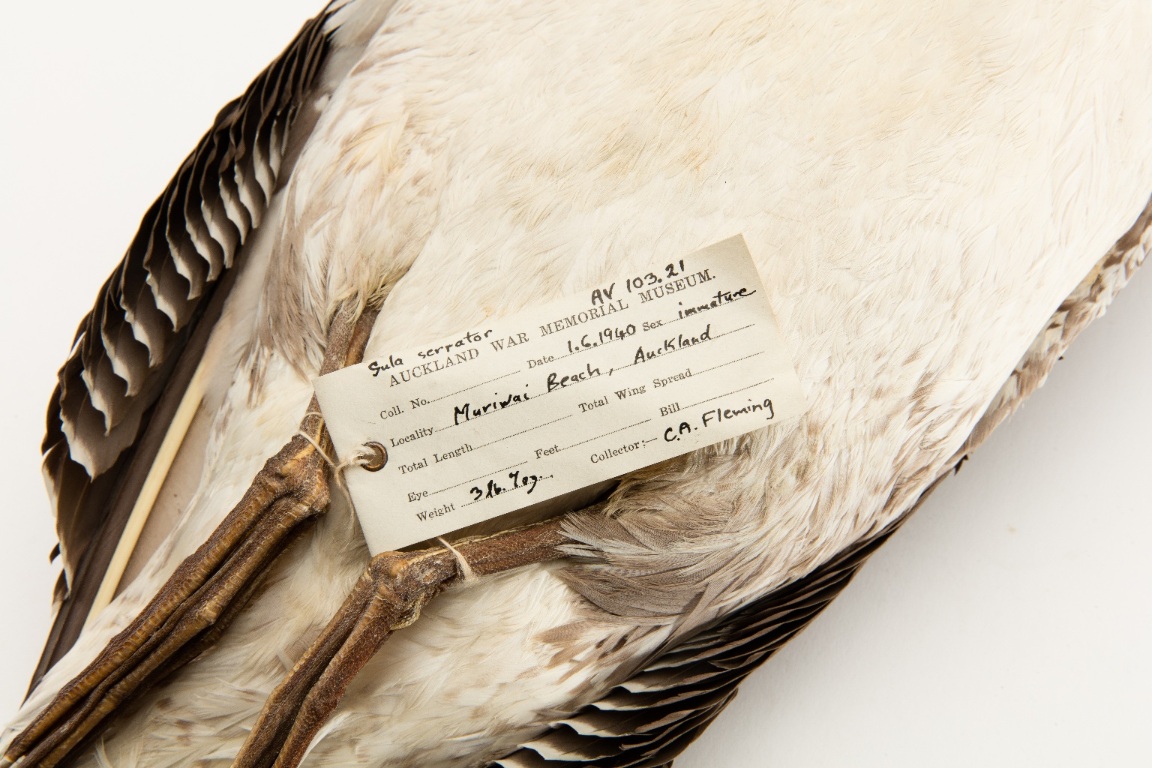 AV 103.21
Sula serrator
AUCKLAND WAR MEMORIAL MUSEUM.
Coll. No. Date 1.6.1940 Sex immature
Locality Muriwai Beach, Auckland
Total Length Total Wing Spread
Eye Feet Bill
Weight 3 lb. 7oz. Collector:— C.A. Fleming